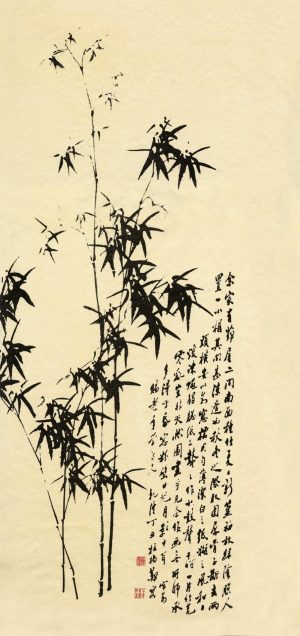 余家有茅屋二間南面種竹夏日新篁初放綠陰照人
置一小榻其中甚涼適也秋冬之際取圍屏骨子斷去兩
頭橫安以為窗櫺用勻薄潔白之紙糊之風和日
暖凍蠅觸紙上鼕鼕作小鼓聲于時一片竹影
零亂豈非天然圖畫乎凡吾畫竹無所師承
多得于紙窗粉壁日光月影中耳
乾隆丁丑板橋鄭燮